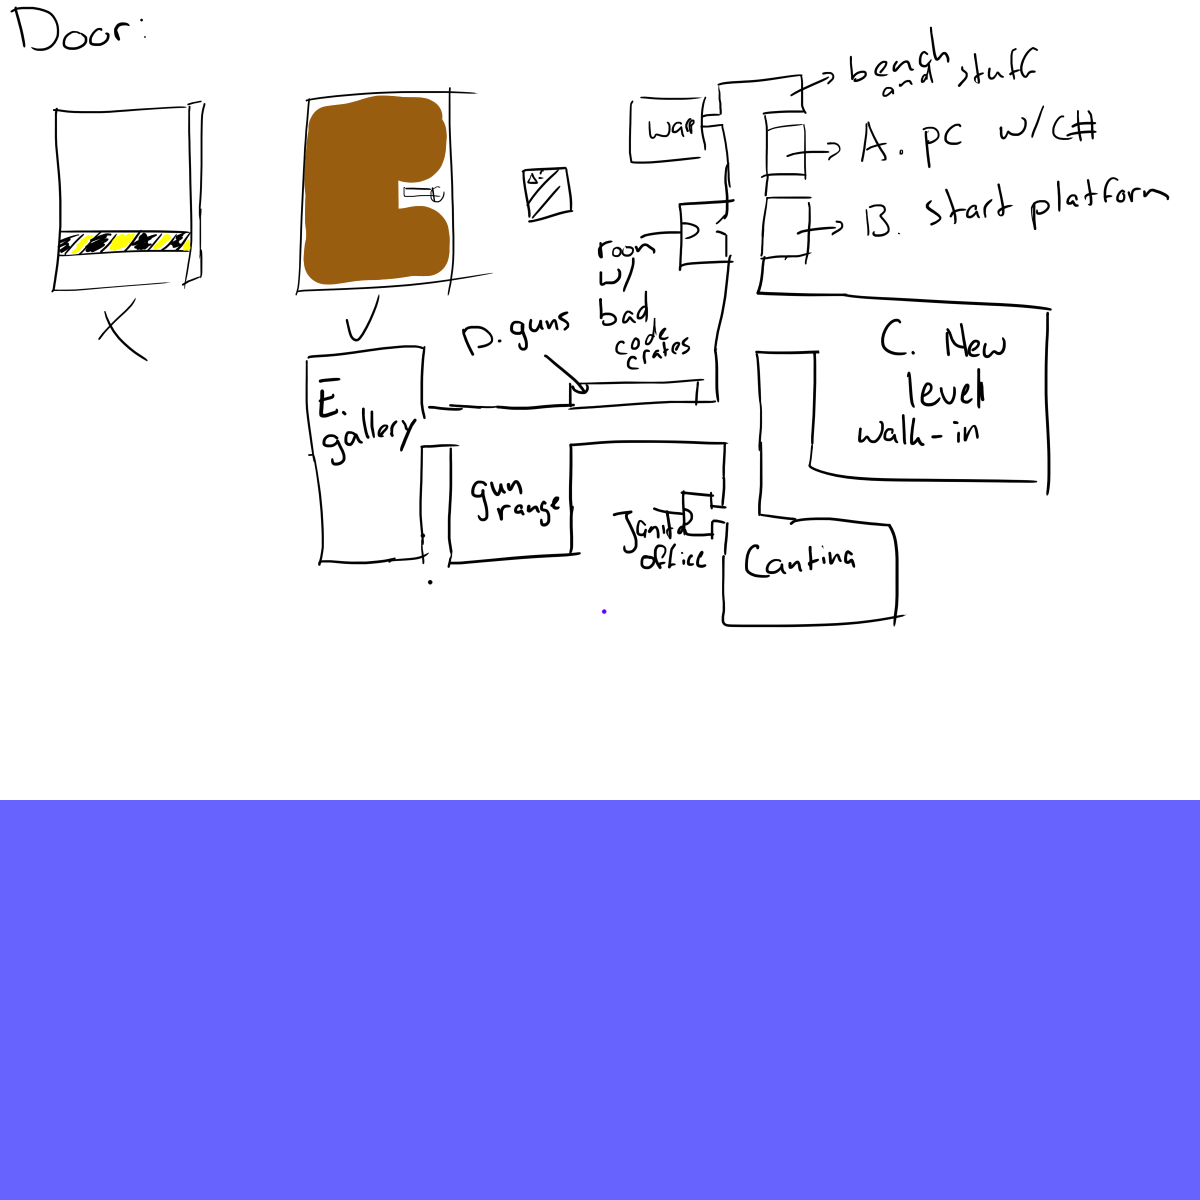 Door:
bench
and stuff
A. pc w/ C#
B. start platform
room
w/
bad
code
crates
D. guns
C. New
level
walk-in
E.
gallery
gun
range
office
Cantina